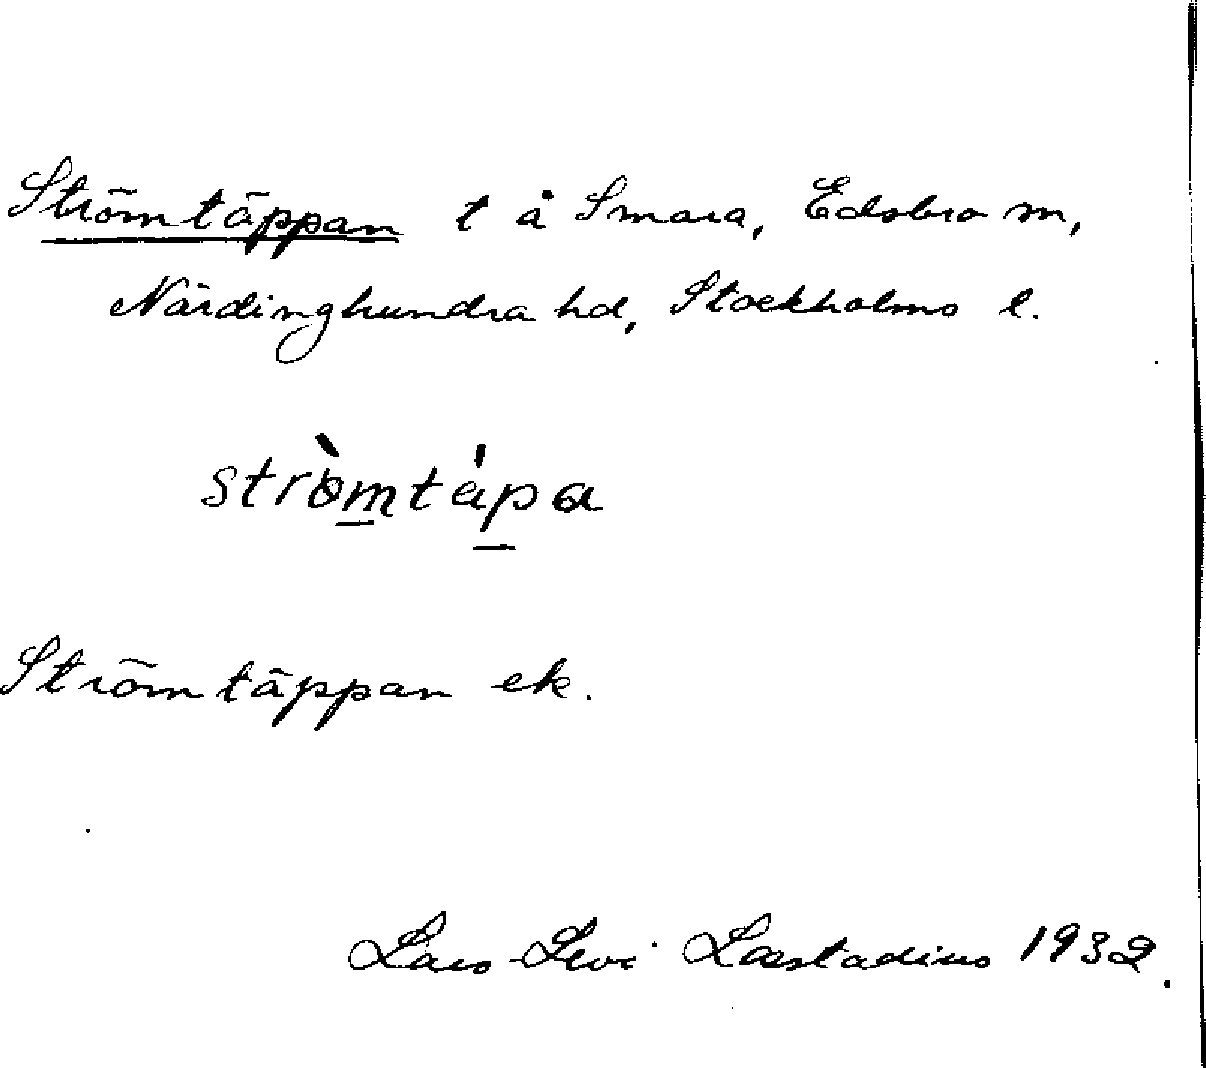 Strömtäppan t å Smara, Edsbro sn,
Närdinghundra hd, Stockholms l.
strò̀mtä́pa
Strömtäppan ek.
Lars-Levi Læstadius 1932.